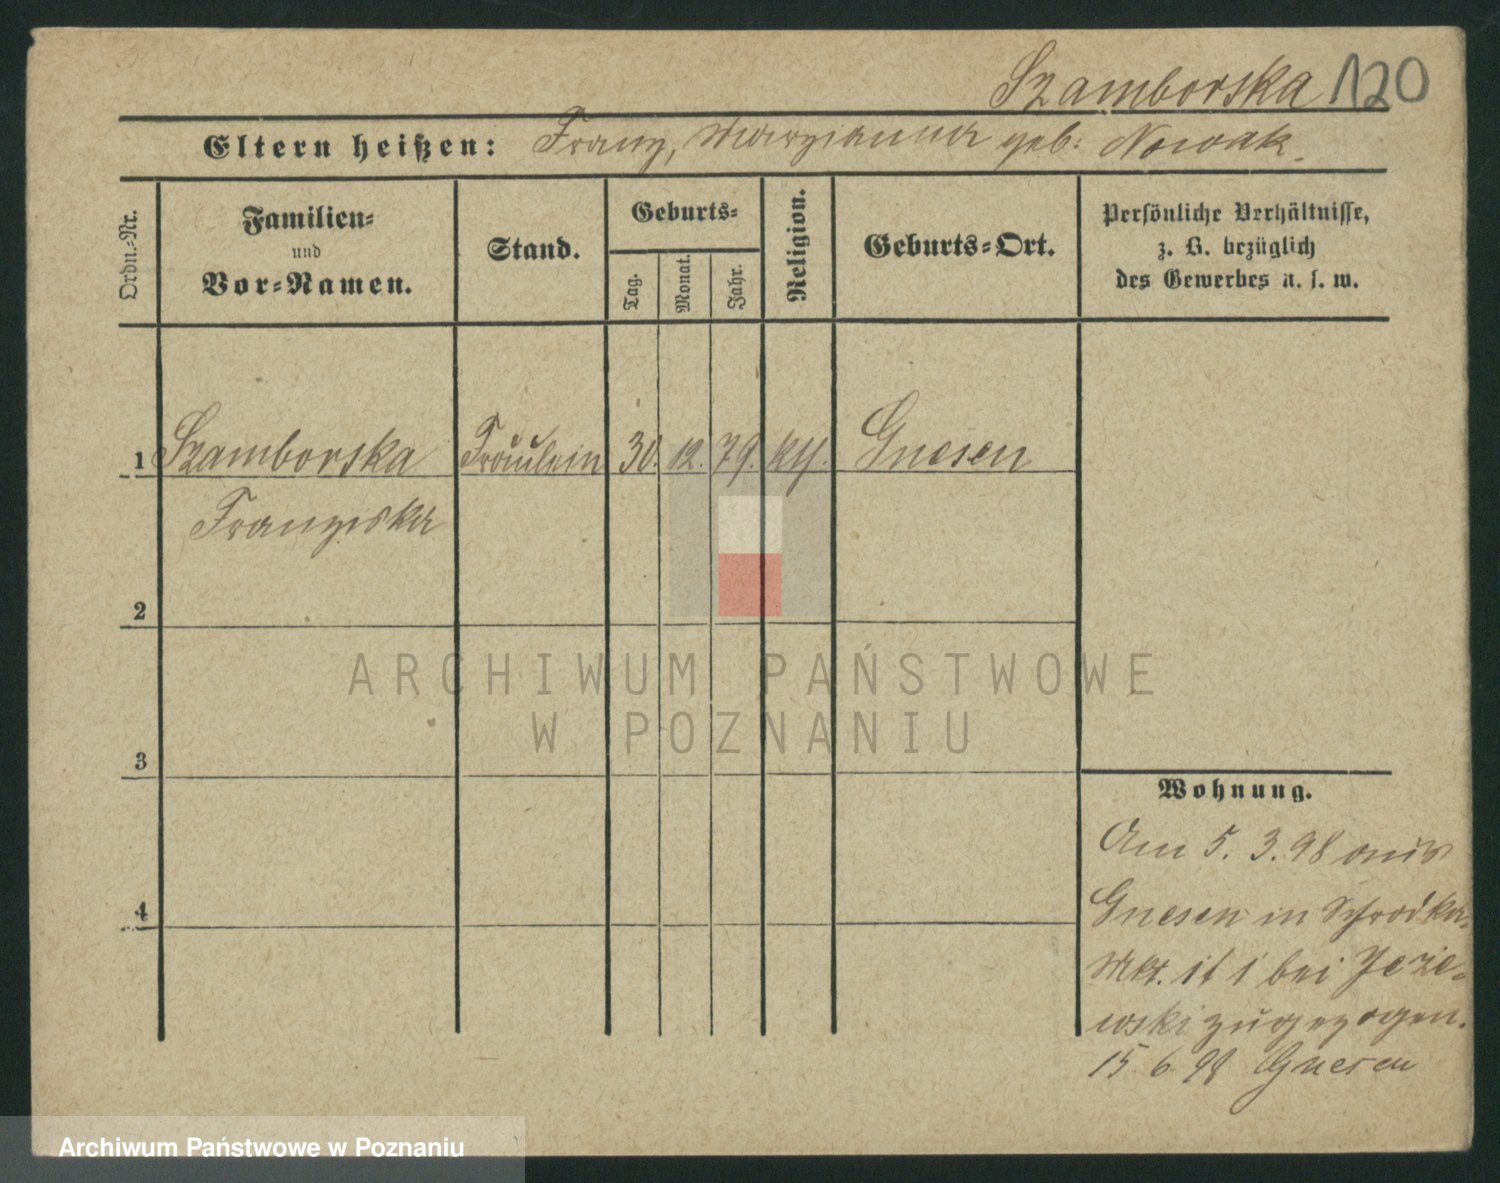 Szamborska 120
Eltern heißen: Franz, Marzianna geb: Nowak.
Ordn.-Nr.
Familien-
und
Vor-Namen.
Stand.
Geburts-
Tag.
Monat.
Jahr.
Religion.
Geburts-Ort.
Persönliche Verhältnisse,
z. B. bezüglich
des Gewerbes u. s. w.
1 Szamborska Fräulein 30. 12. 79. Gnesen
Franziska
2
3
4
Wohnung.
Am 5. 3. 98 aus
Gnesen in Schrodka-
Mkt. bei Jezie-
wski zugezogen.
15 6 98 Gnesen
ARCHIWUM PAŃSTWOWE
W POZNANIU
Archiwum Państwowe w Poznaniu